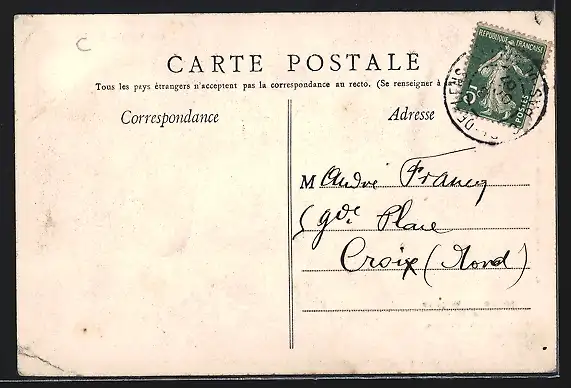 C
RÉPUBLIQUE FRANÇAISE
5
POSTES
CARTE POSTALE
Tous les pays étrangers n'acceptent pas la correspondance au recto. (Se renseigner à
Correspondance
Adresse
M André Francq
gde Place
Croix (Nord)